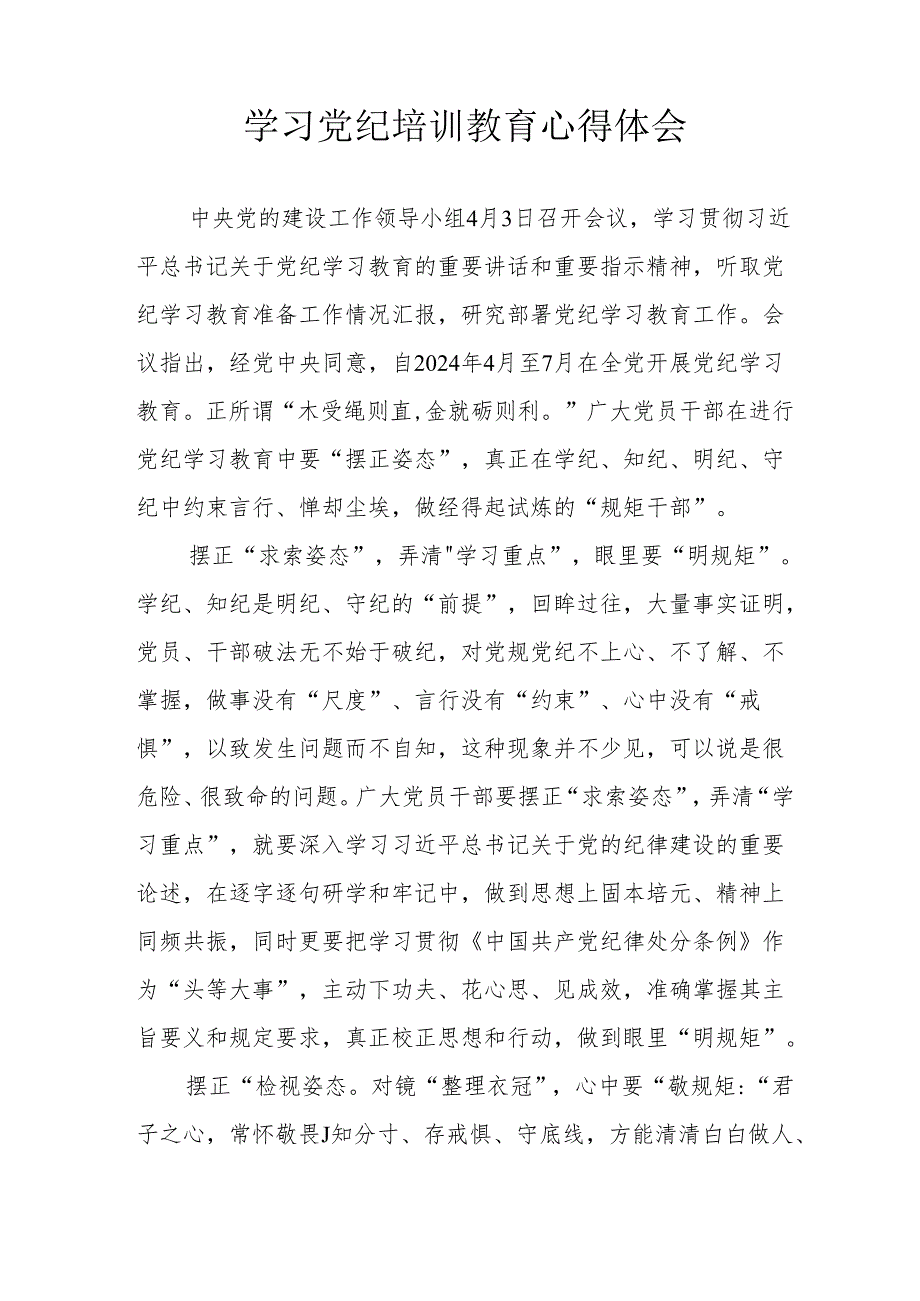 学习党纪培训教育心得体会
中央党的建设工作领导小组4月3日召开会议，学习贯彻习近
平总书记关于党纪学习教育的重要讲话和重要指示精神，听取党
纪学习教育准备工作情况汇报，研究部署党纪学习教育工作。会
议指出，经党中央同意，自2024年4月至7月在全党开展党纪学习
教育。正所谓“木受绳则直,金就砺则利。”广大党员干部在进行
党纪学习教育中要“摆正姿态”，真正在学纪、知纪、明纪、守
纪中约束言行、惮却尘埃，做经得起试炼的“规矩干部”。
摆正“求索姿态”，弄清"学习重点”，眼里要“明规矩”。
学纪、知纪是明纪、守纪的“前提”，回眸过往，大量事实证明，
党员、干部破法无不始于破纪，对党规党纪不上心、不了解、不
掌握，做事没有“尺度”、言行没有“约束”、心中没有“戒
惧”，以致发生问题而不自知，这种现象并不少见，可以说是很
危险、很致命的问题。广大党员干部要摆正“求索姿态”，弄清“学
习重点”，就要深入学习习近平总书记关于党的纪律建设的重要
论述，在逐字逐句研学和牢记中，做到思想上固本培元、精神上
同频共振，同时更要把学习贯彻《中国共产党纪律处分条例》作
为“头等大事”，主动下功夫、花心思、见成效，准确掌握其主
旨要义和规定要求，真正校正思想和行动，做到眼里“明规矩”。
摆正“检视姿态。对镜“整理衣冠”，心中要“敬规矩:“君
子之心，常怀敬畏J知分寸、存戒惧、守底线，方能清清白白做人、